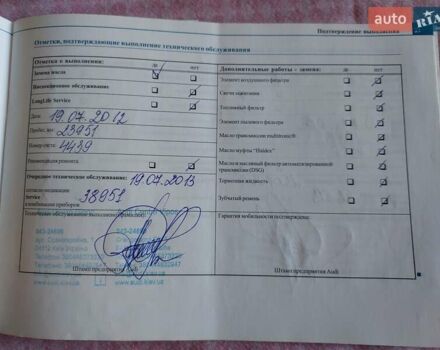 auto.
RIA
Подтверждение выполнения
Отметки, подтверждающие выполнение технического обслуживания
Отметка о выполнении:
да
нет
Замена масла
Инспекционное обслуживание
LongLife Service
Дата:
19.07.2012
Пробег, км:
23951
Номер счета:
4439
Рекомендация ремонта
Очередное техническое обслуживание:
19.07.2013
согласно индикации
Service
в комбинации приборов
38951
Техническое обслуживание выполнено
Штамп предприятия Audi
Дополнительные работы - замена:
да
нет
Элемент воздушного фильтра
Свечи зажигания
Топливный фильтр
Элемент пылевого фильтра
Масло трансмиссии multitronic®
Масло муфты "Haldex"
Масло и масляный фильтр автоматизированной
трансмиссии (DSG)
Тормозная жидкость
Зубчатый ремень
Гарантия мобильности подтверждена:
Штамп предприятия Audi
www.audi.kiev.ua
www.audi.kiev.ua